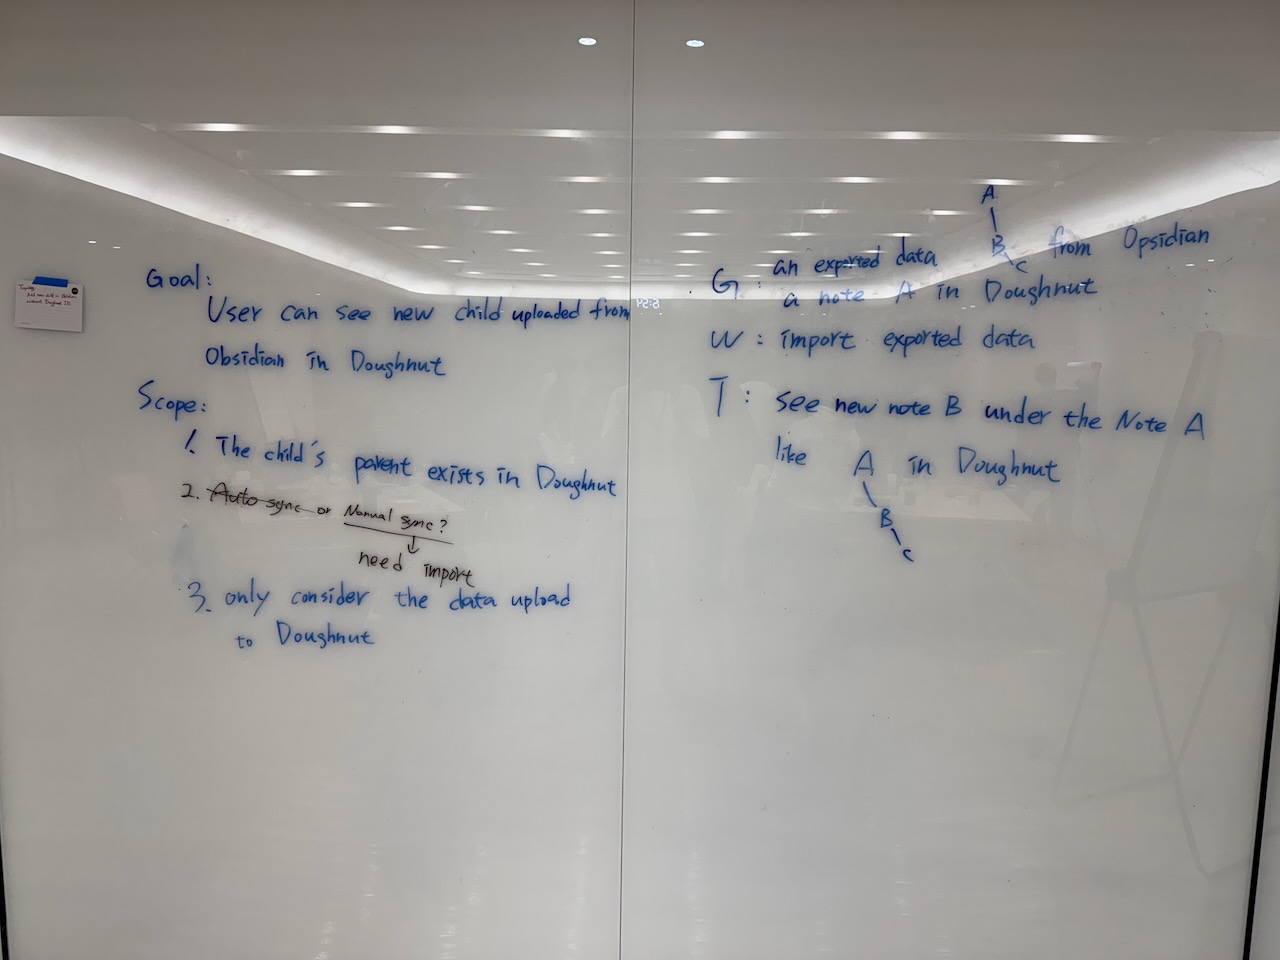 Goal:
User can see new child uploaded from
Obsidian in Doughnut
Scope:
1. The child's parent exists in Doughnut
2. Auto sync or Manual sync?
need import
3. only consider the data upload
to Doughnut
A
B
C
G: an exported data from Opsidian
a note A in Doughnut
W: import exported data
T: see new note B under the Note A
like A in Doughnut
B
C